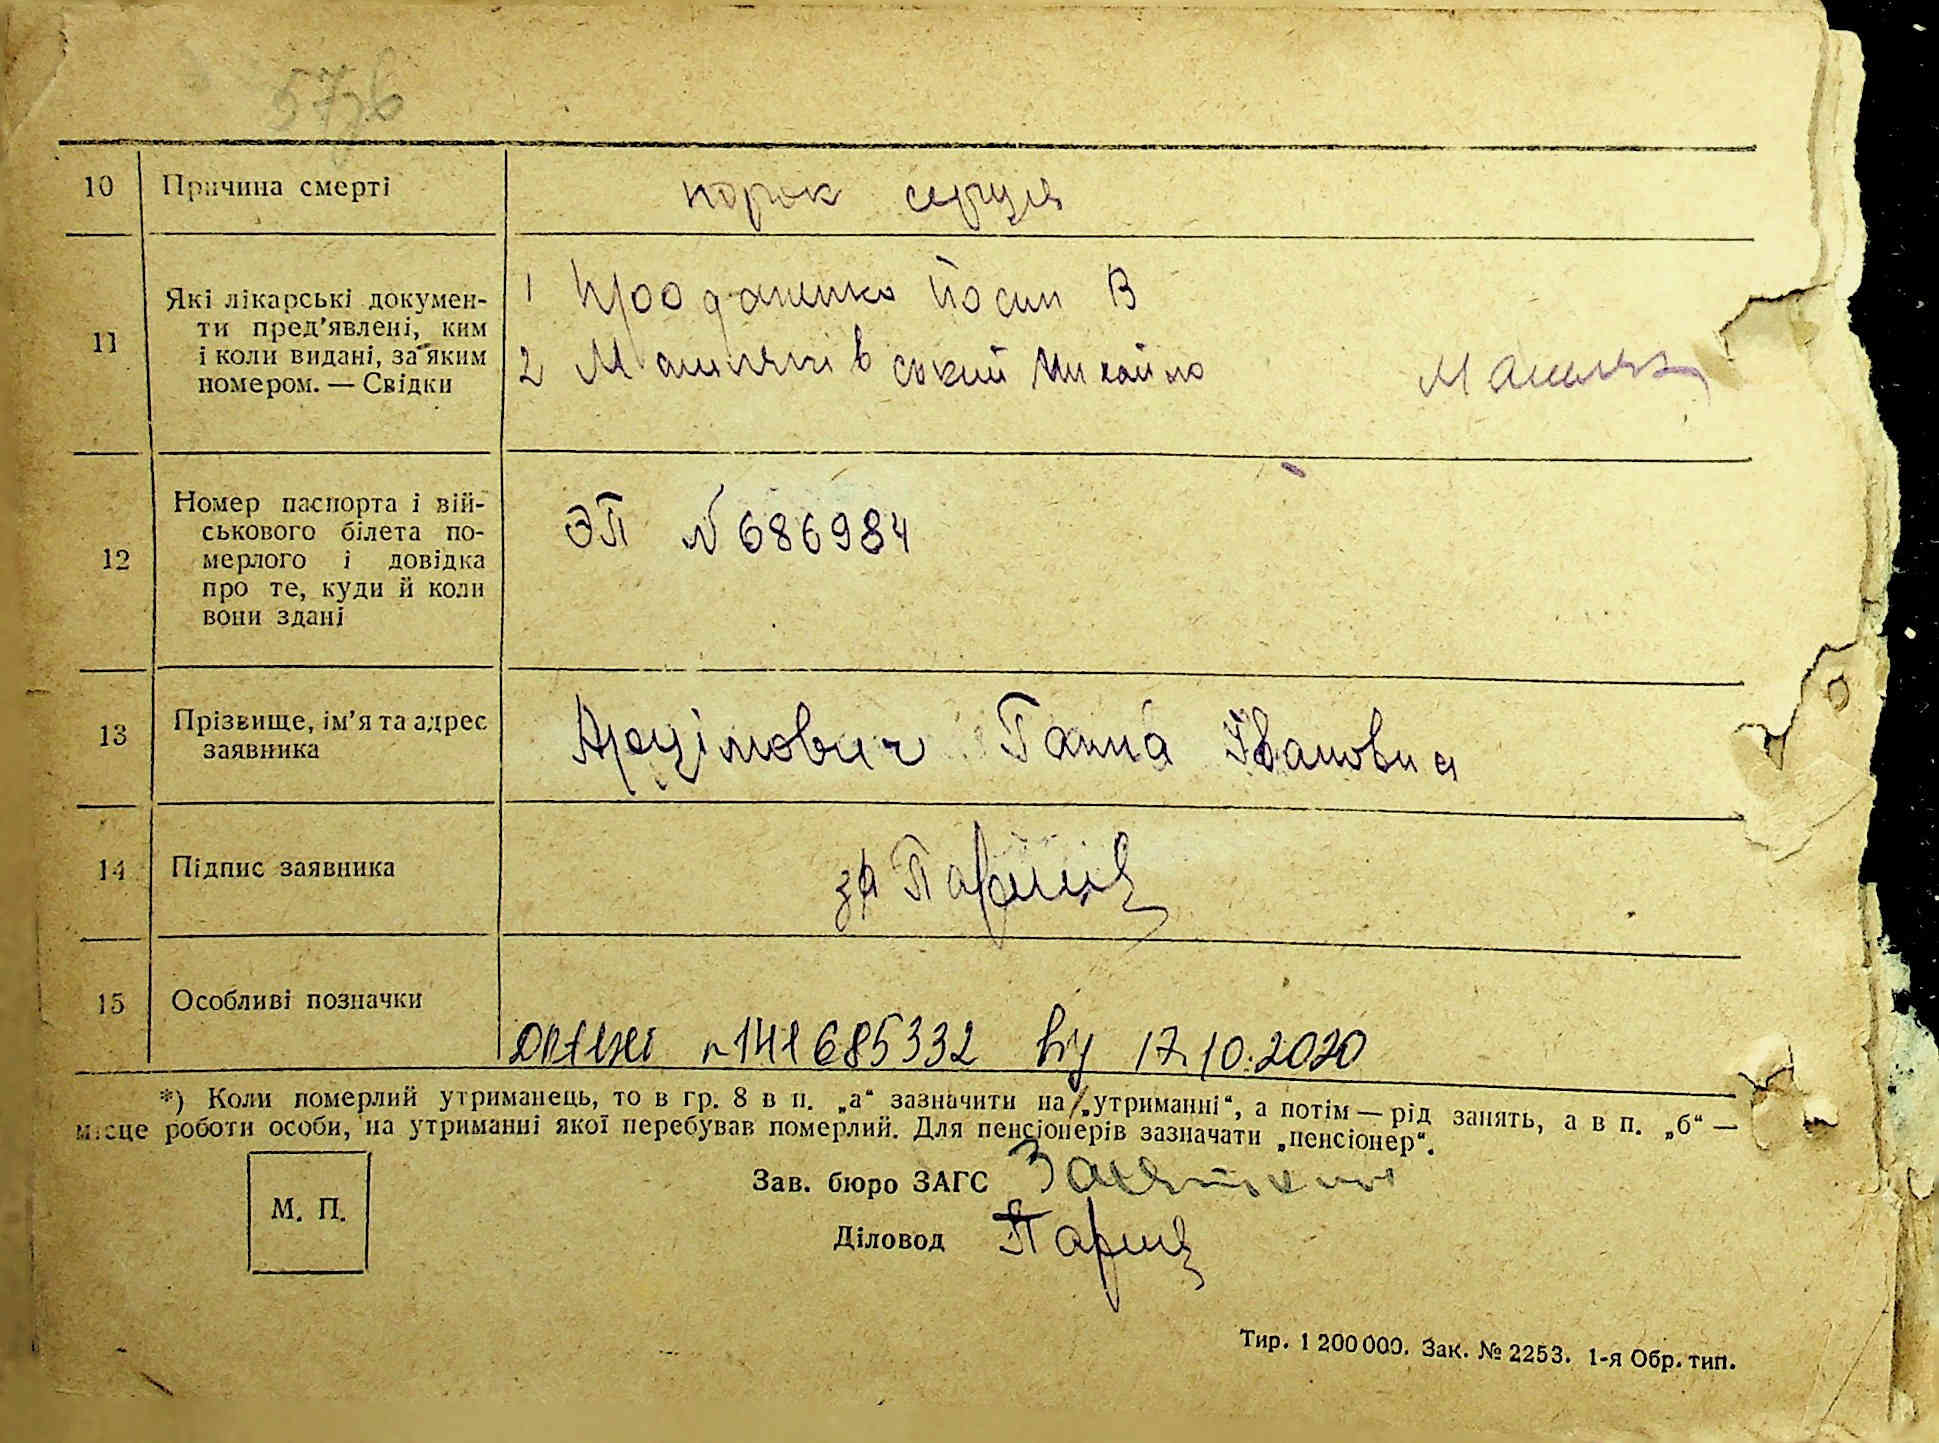 57зв
10 Причина смерті порок серця
11 Які лікарські докумен-
ти пред'явлені, ким
і коли видані, за яким
номером. — Свідки
1 Йосип В
2 Михайло
12 Номер паспорта і вій-
ськового білета по-
мерлого і довідка
про те, куди й коли
вони здані
ЭП № 686984
13 Прізвище, ім'я та адрес
заявника
Арцімович Ганна Івановна
14 Підпис заявника за
15 Особливі позначки
141685332 від 17.10.2020
*) Коли померлий утриманець, то в гр. 8 в п. „а“ зазначити на „утриманні“, а потім — рід занять, а в п. „б“ —
місце роботи особи, на утриманні якої перебував померлий. Для пенсіонерів зазначати „пенсіонер“.
М. П.
Зав. бюро ЗАГС
Діловод
Тир. 1 200 000. Зак. № 2253. 1-я Обр. тип.